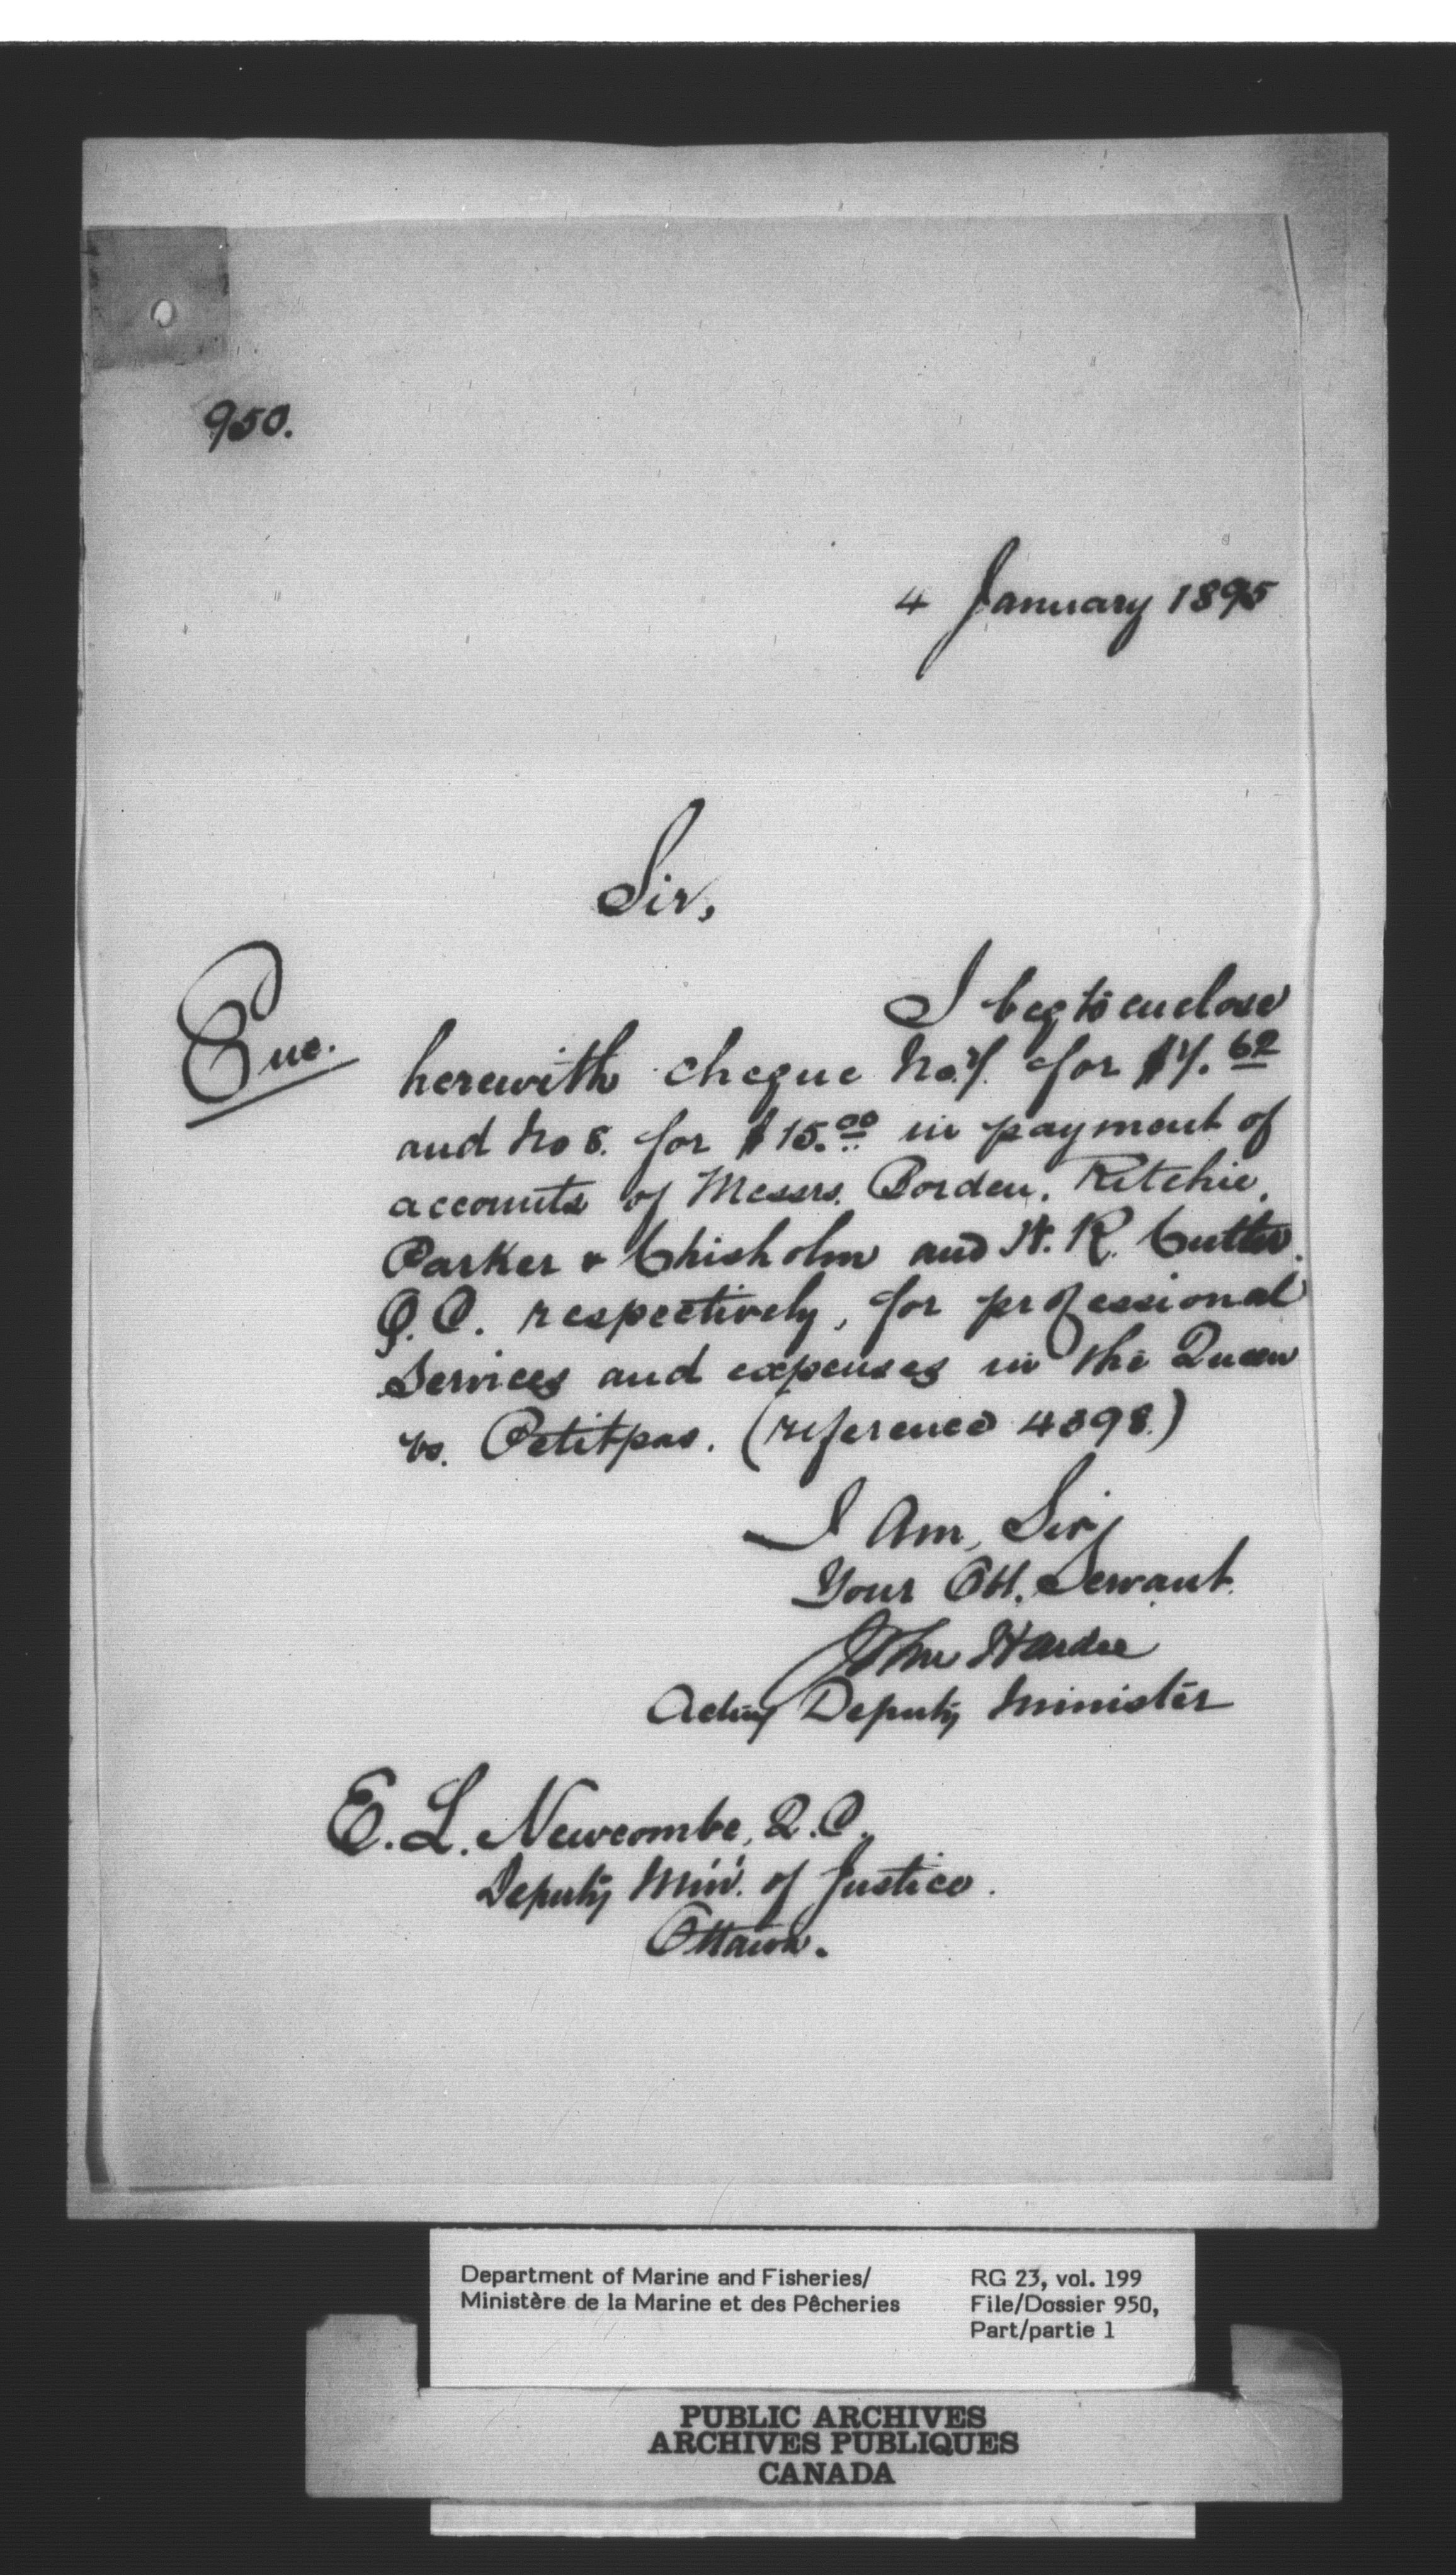 950.
4 January 1895
Sir,
Enc.
I beg to enclose
herewith cheque No. 7. for $7. 62
and No 8. for $15.00 in payment of
accounts of Messrs. Borden, Ritchie,
Parker & Chisholm and W. R. Cutler.
Q.C. respectively, for professional
Services and expenses in the Queen
vs. Petitpas. (reference 4398.)
I Am, Sir,
Your Obt. Servant.
John Hardie
Acting Deputy Minister
E. L. Newcombe, Q.C.
Deputy Min. of Justice.
Ottawa.
Department of Marine and Fisheries/
Ministère de la Marine et des Pêcheries
RG 23, vol. 199
File/Dossier 950,
Part/partie 1
PUBLIC ARCHIVES
ARCHIVES PUBLIQUES
CANADA